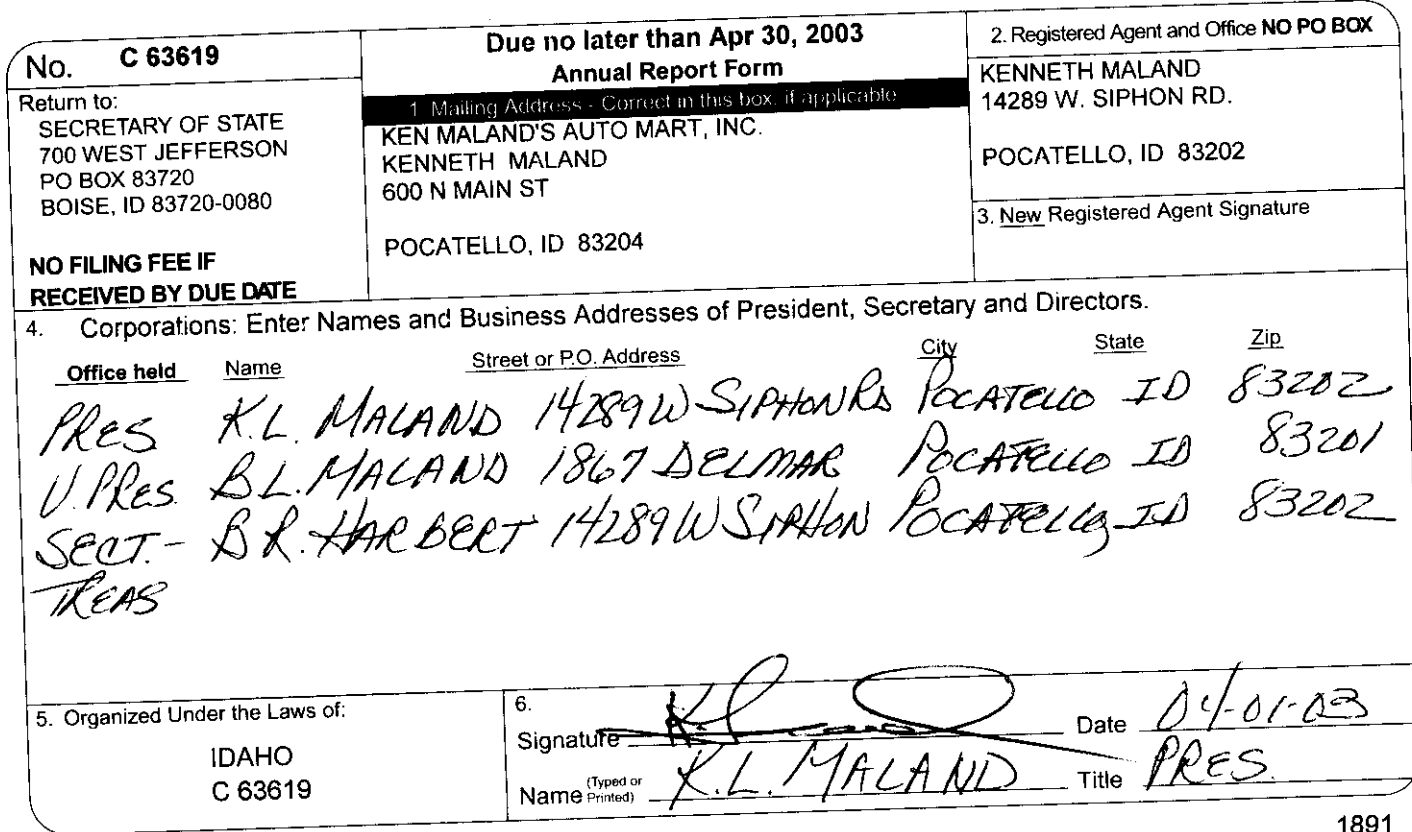 No. C 63619
Return to:
SECRETARY OF STATE
700 WEST JEFFERSON
PO BOX 83720
BOISE, ID 83720-0080
NO FILING FEE IF
RECEIVED BY DUE DATE
Due no later than Apr 30, 2003
Annual Report Form
1. Mailing Address - Correct in this box, if applicable
KEN MALAND'S AUTO MART, INC.
KENNETH MALAND
600 N MAIN ST
POCATELLO, ID 83204
2. Registered Agent and Office NO PO BOX
KENNETH MALAND
14289 W. SIPHON RD.
POCATELLO, ID 83202
3. New Registered Agent Signature
4. Corporations: Enter Names and Business Addresses of President, Secretary and Directors.
Office held Name Street or P.O. Address City State Zip
PRES K.L. MALAND 14289 W SIPHON RD POCATELLO ID 83202
V. PRES. B L. MALAND 1867 DELMAR POCATELLO ID 83201
SECT.- B R. HARBERT 14289 W SIPHON POCATELLO, ID 83202
TREAS
5. Organized Under the Laws of:
IDAHO
C 63619
6.
Signature Date 04-01-03
Name (Typed or Printed) K.L. MALAND Title PRES.
1891